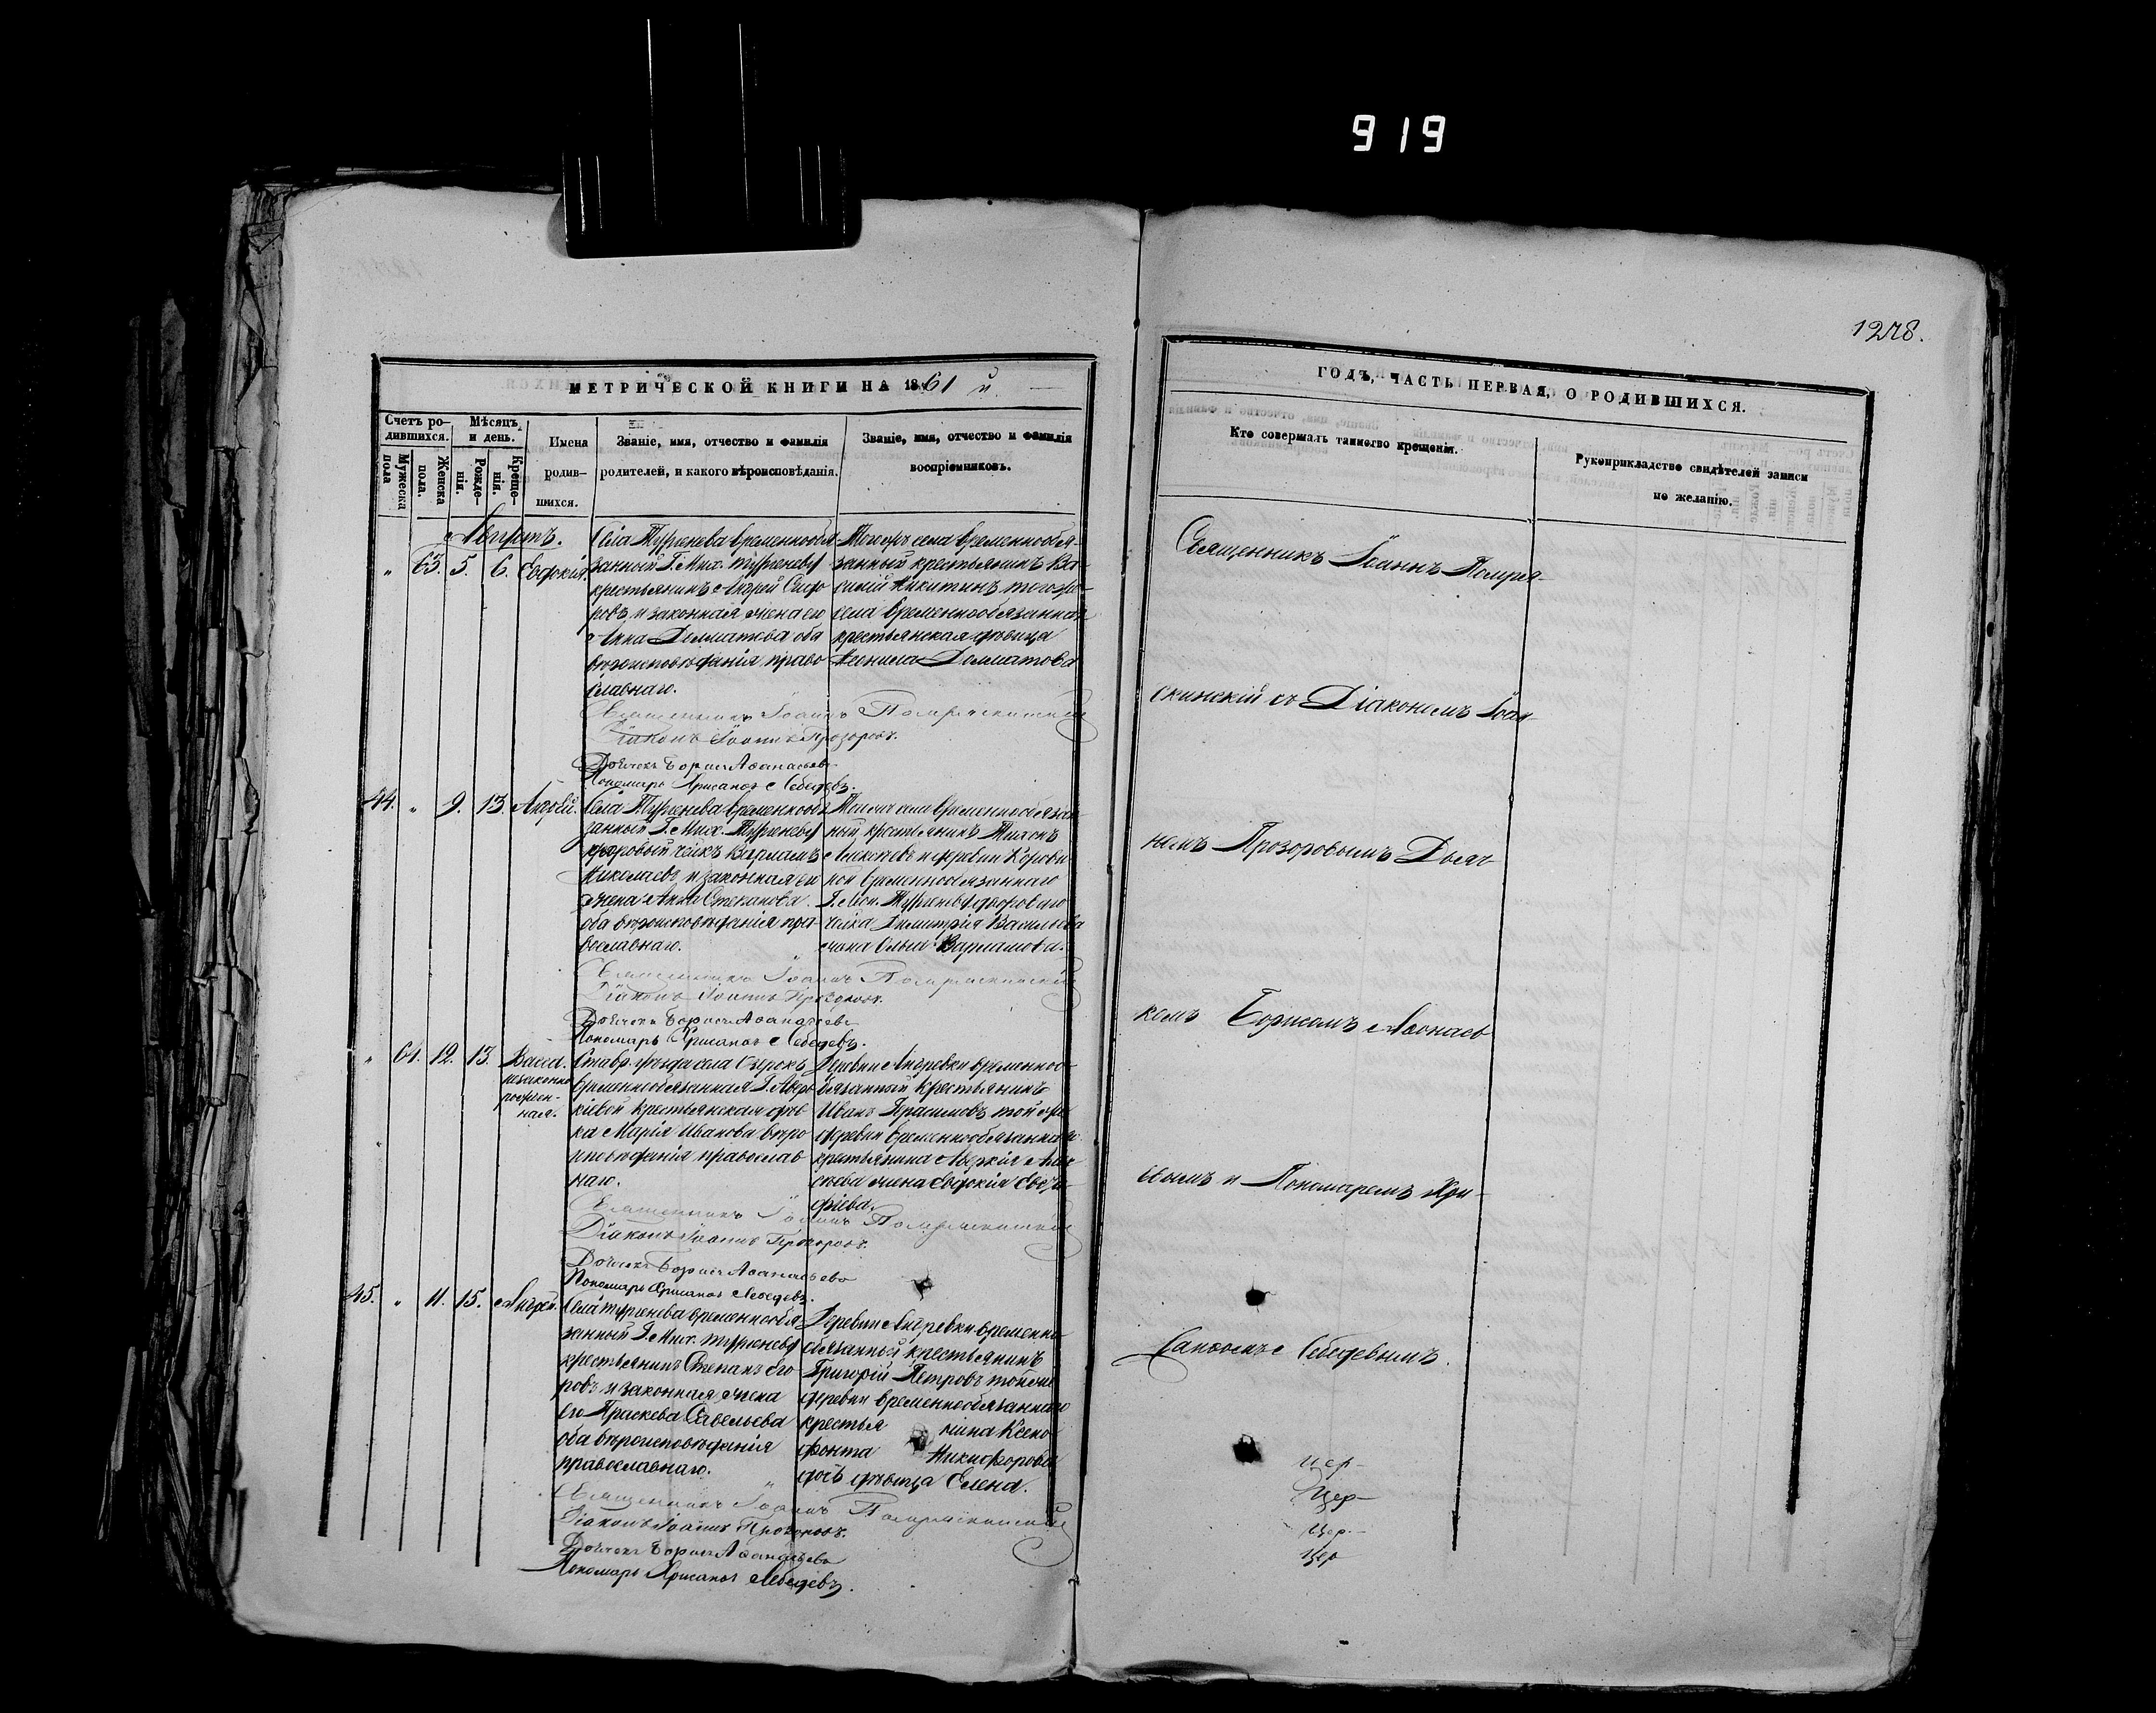 919
1278.
МЕТРИЧЕСКОЙ КНИГИ НА 1861 й.
Счетъ ро-
дившихся.
Мѣсяцъ
и день.
Мужеска
пола
Женска
пола.
Рожде-
нія.
Креще-
нія.
Имена
родив-
шихся.
Званіе, имя, отчество и фамилія
родителей, и какого вѣроисповѣданія.
Званіе, имя, отчество и фамилія
воспріемниковъ.
Августъ.
" 63. 5. 6. Евдокія.
Села Тургенева временнообя-
занный Г. Мих. Тургеневу
крестьянинъ Андрей Сидо
ровъ и законная жена его
Анна Долматова оба
вѣроисповѣданія право
славнаго.
Тогожъ села временнообя-
занный крестьянинъ Ва-
силій Никитинъ тогоже
села временнообязанная
крестьянская дѣвица
Долматова
Священникъ Іоаннъ
Діаконъ Іоаннъ Прозоровъ.
Дьячекъ Борисъ Аѳанасьевъ
Пономарь Хрисанѳъ Лебедевъ.
44. " 9. 13. Андрей.
Села Тургенева временнообя
занный Г. Мих. Тургеневу
дворовый чел. Варламъ
Николаевъ и законная его
жена Анна Степанова
оба вѣроисповѣданія пра-
вославнаго.
Тогожъ села временнообязан
ный крестьянинъ Тихонъ
Алексѣевъ и деревни
временнообязаннаго
Г. Тургеневу двороваго
Димитрія Васильева
жена Ольга Варламова.
Священникъ Іоаннъ
Діаконъ Іоаннъ Прозоровъ.
Дьячекъ Борисъ Аѳанасьевъ
Пономарь Хрисанѳъ Лебедевъ.
" 64. 12. 13. Васса.
незаконно
рожден-
ная.
Ставр. уѣзда села Озерокъ
временнообязанная Г.
крестьянская дѣв
ка Марія Иванова вѣро
исповѣданія православ
наго.
Деревни Андревки временноо
бязанный крестьянинъ
Иванъ Герасимовъ той же
деревни временнообязаннаго
крестьянина
жена Евдокія
Священникъ Іоаннъ
Діаконъ Іоаннъ Прозоровъ.
Дьячекъ Борисъ Аѳанасьевъ
Пономарь Хрисанѳъ Лебедевъ.
45. " 11. 15. Андрей.
Села Тургенева временнообя
занный Г. Мих. Тургеневу
крестьянинъ Степанъ Его
ровъ и законная жена
его Праскева Савельева
оба вѣроисповѣданія
православнаго.
Деревни Андревки временно
обязанный крестьянинъ
Григорій Петровъ той же
деревни временнообязаннаго
крестья нина Ксено
фонта Никифорова
дочь дѣвица Елена.
Священникъ Іоаннъ
Діаконъ Іоаннъ Прозоровъ.
Дьячекъ Борисъ Аѳанасьевъ
Пономарь Хрисанѳъ Лебедевъ.
ГОДЪ, ЧАСТЬ ПЕРВАЯ, О РОДИВШИХСЯ.
Кто совершалъ таинство крещенія.
Рукоприкладство свидѣтелей записи
по желанію.
Священникъ Іоаннъ Помря-
скинскій съ Діакономъ Іоан-
номъ Прозоровымъ Дьяч
комъ Борисомъ Аѳонасье
вымъ и Пономаремъ Хри-
санѳомъ Лебедевымъ.
цер-
Цер-
Цер.-
Цер